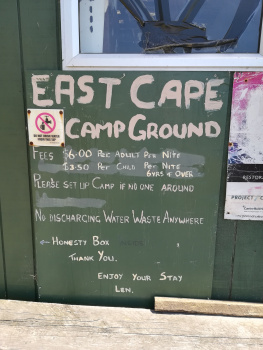 EAST CAPE
CAMP GROUND
FEES $6.00 PER ADULT PER NITE
$3.50 PER CHILD PER NITE
6YRS & OVER
PLEASE SET UP CAMP IF NO ONE AROUND
NO DISCHARGING WATER WASTE ANYWHERE
← HONESTY BOX
THANK YOU.
ENJOY YOUR STAY
LEN.
PROJECT